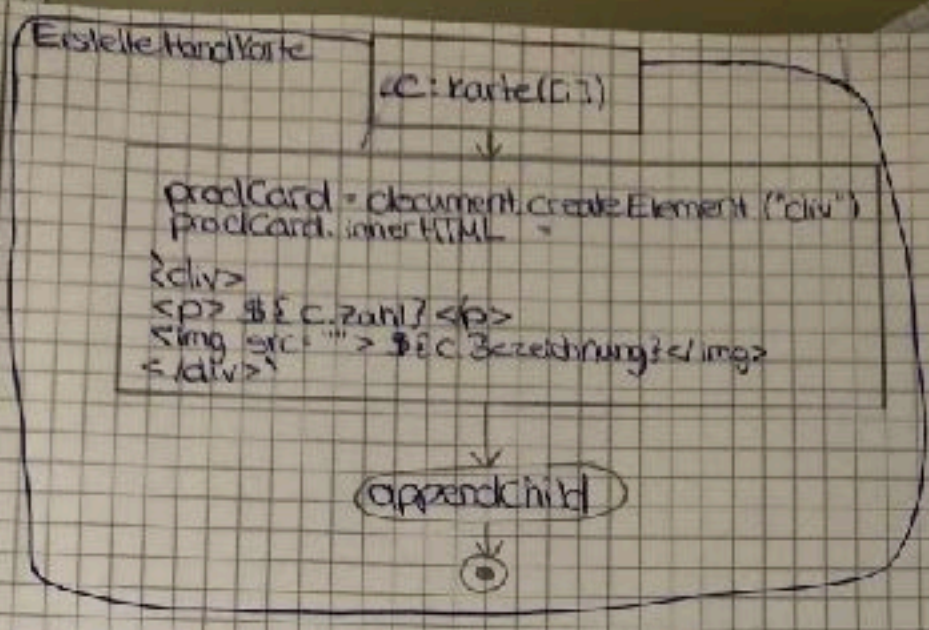 ErstelleHandKarte
c:Karte([i])
prodCard = document.createElement("div")
prodCard.innerHTML =
`<div>
<p> ${c.zahl}</p>
<img src="">${c.Bezeichnung}</img>
</div>`
appendChild